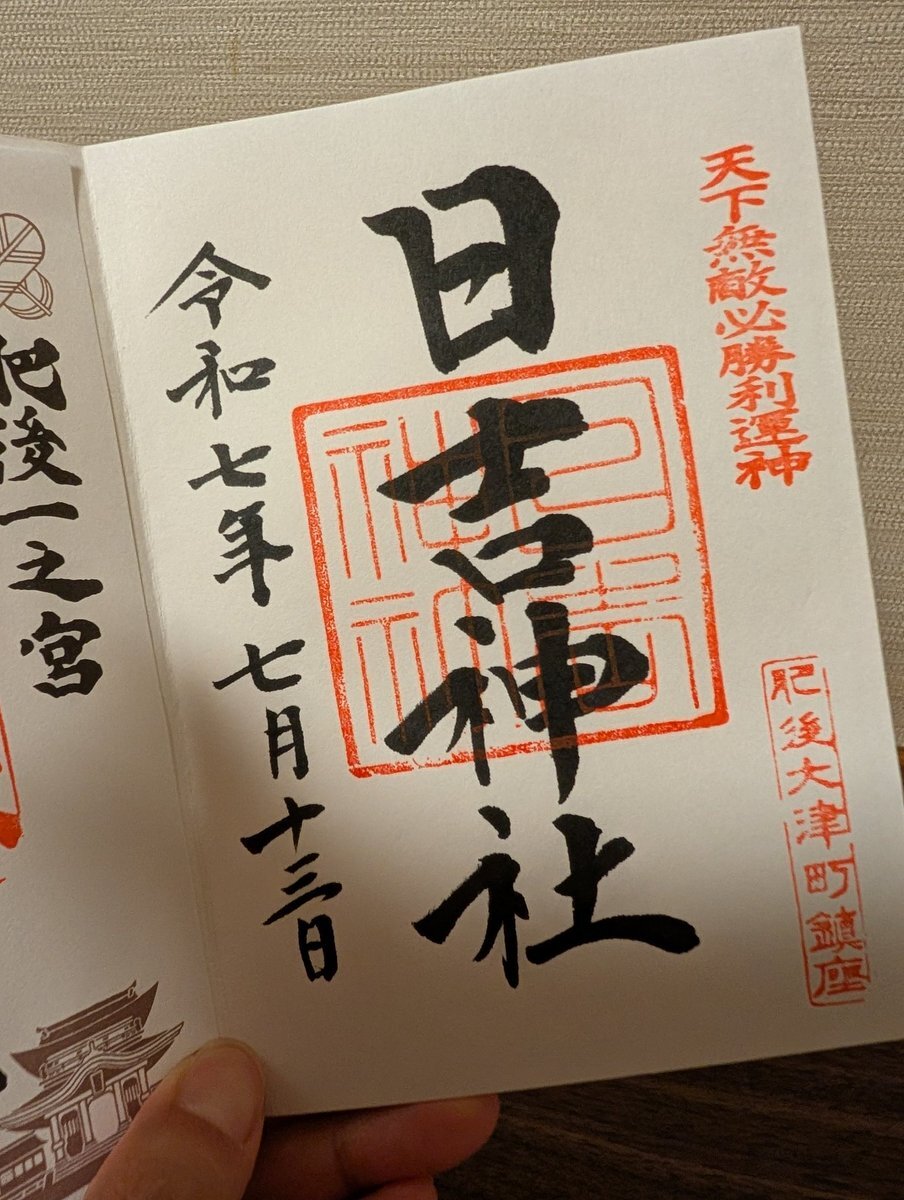 天下無敵必勝利運神
肥後大津町鎮座
日吉神社
日吉神社
令和七年七月十三日
肥後一之宮